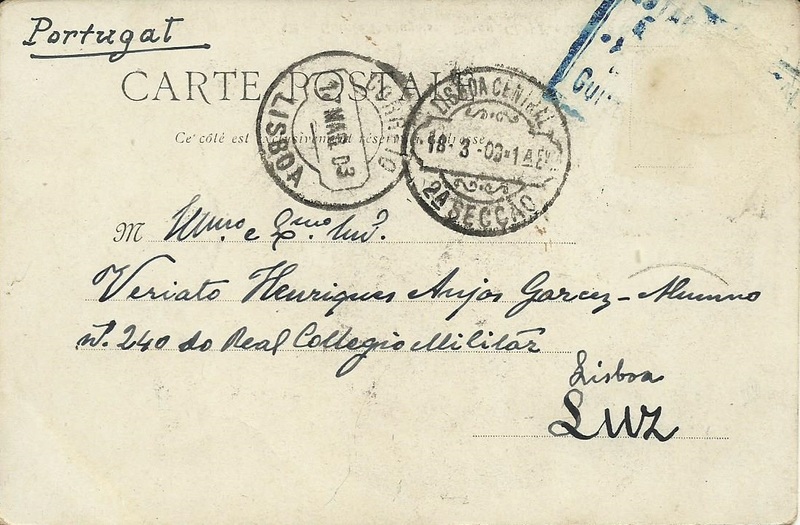 Portugal
CARTE POSTALE
Ce côté est exclusivement réservé à l'adresse
CORREIO
17 MAR. 03
LISBOA
LISBOA CENTRAL
18-3-03-1
2ª SECÇÃO
M Illmo. e Exmo. Snr.
Veriato Henriques Anjos Garcez - Alumno
nº. 240 do Real Collegio Militár
Lisboa
LUZ